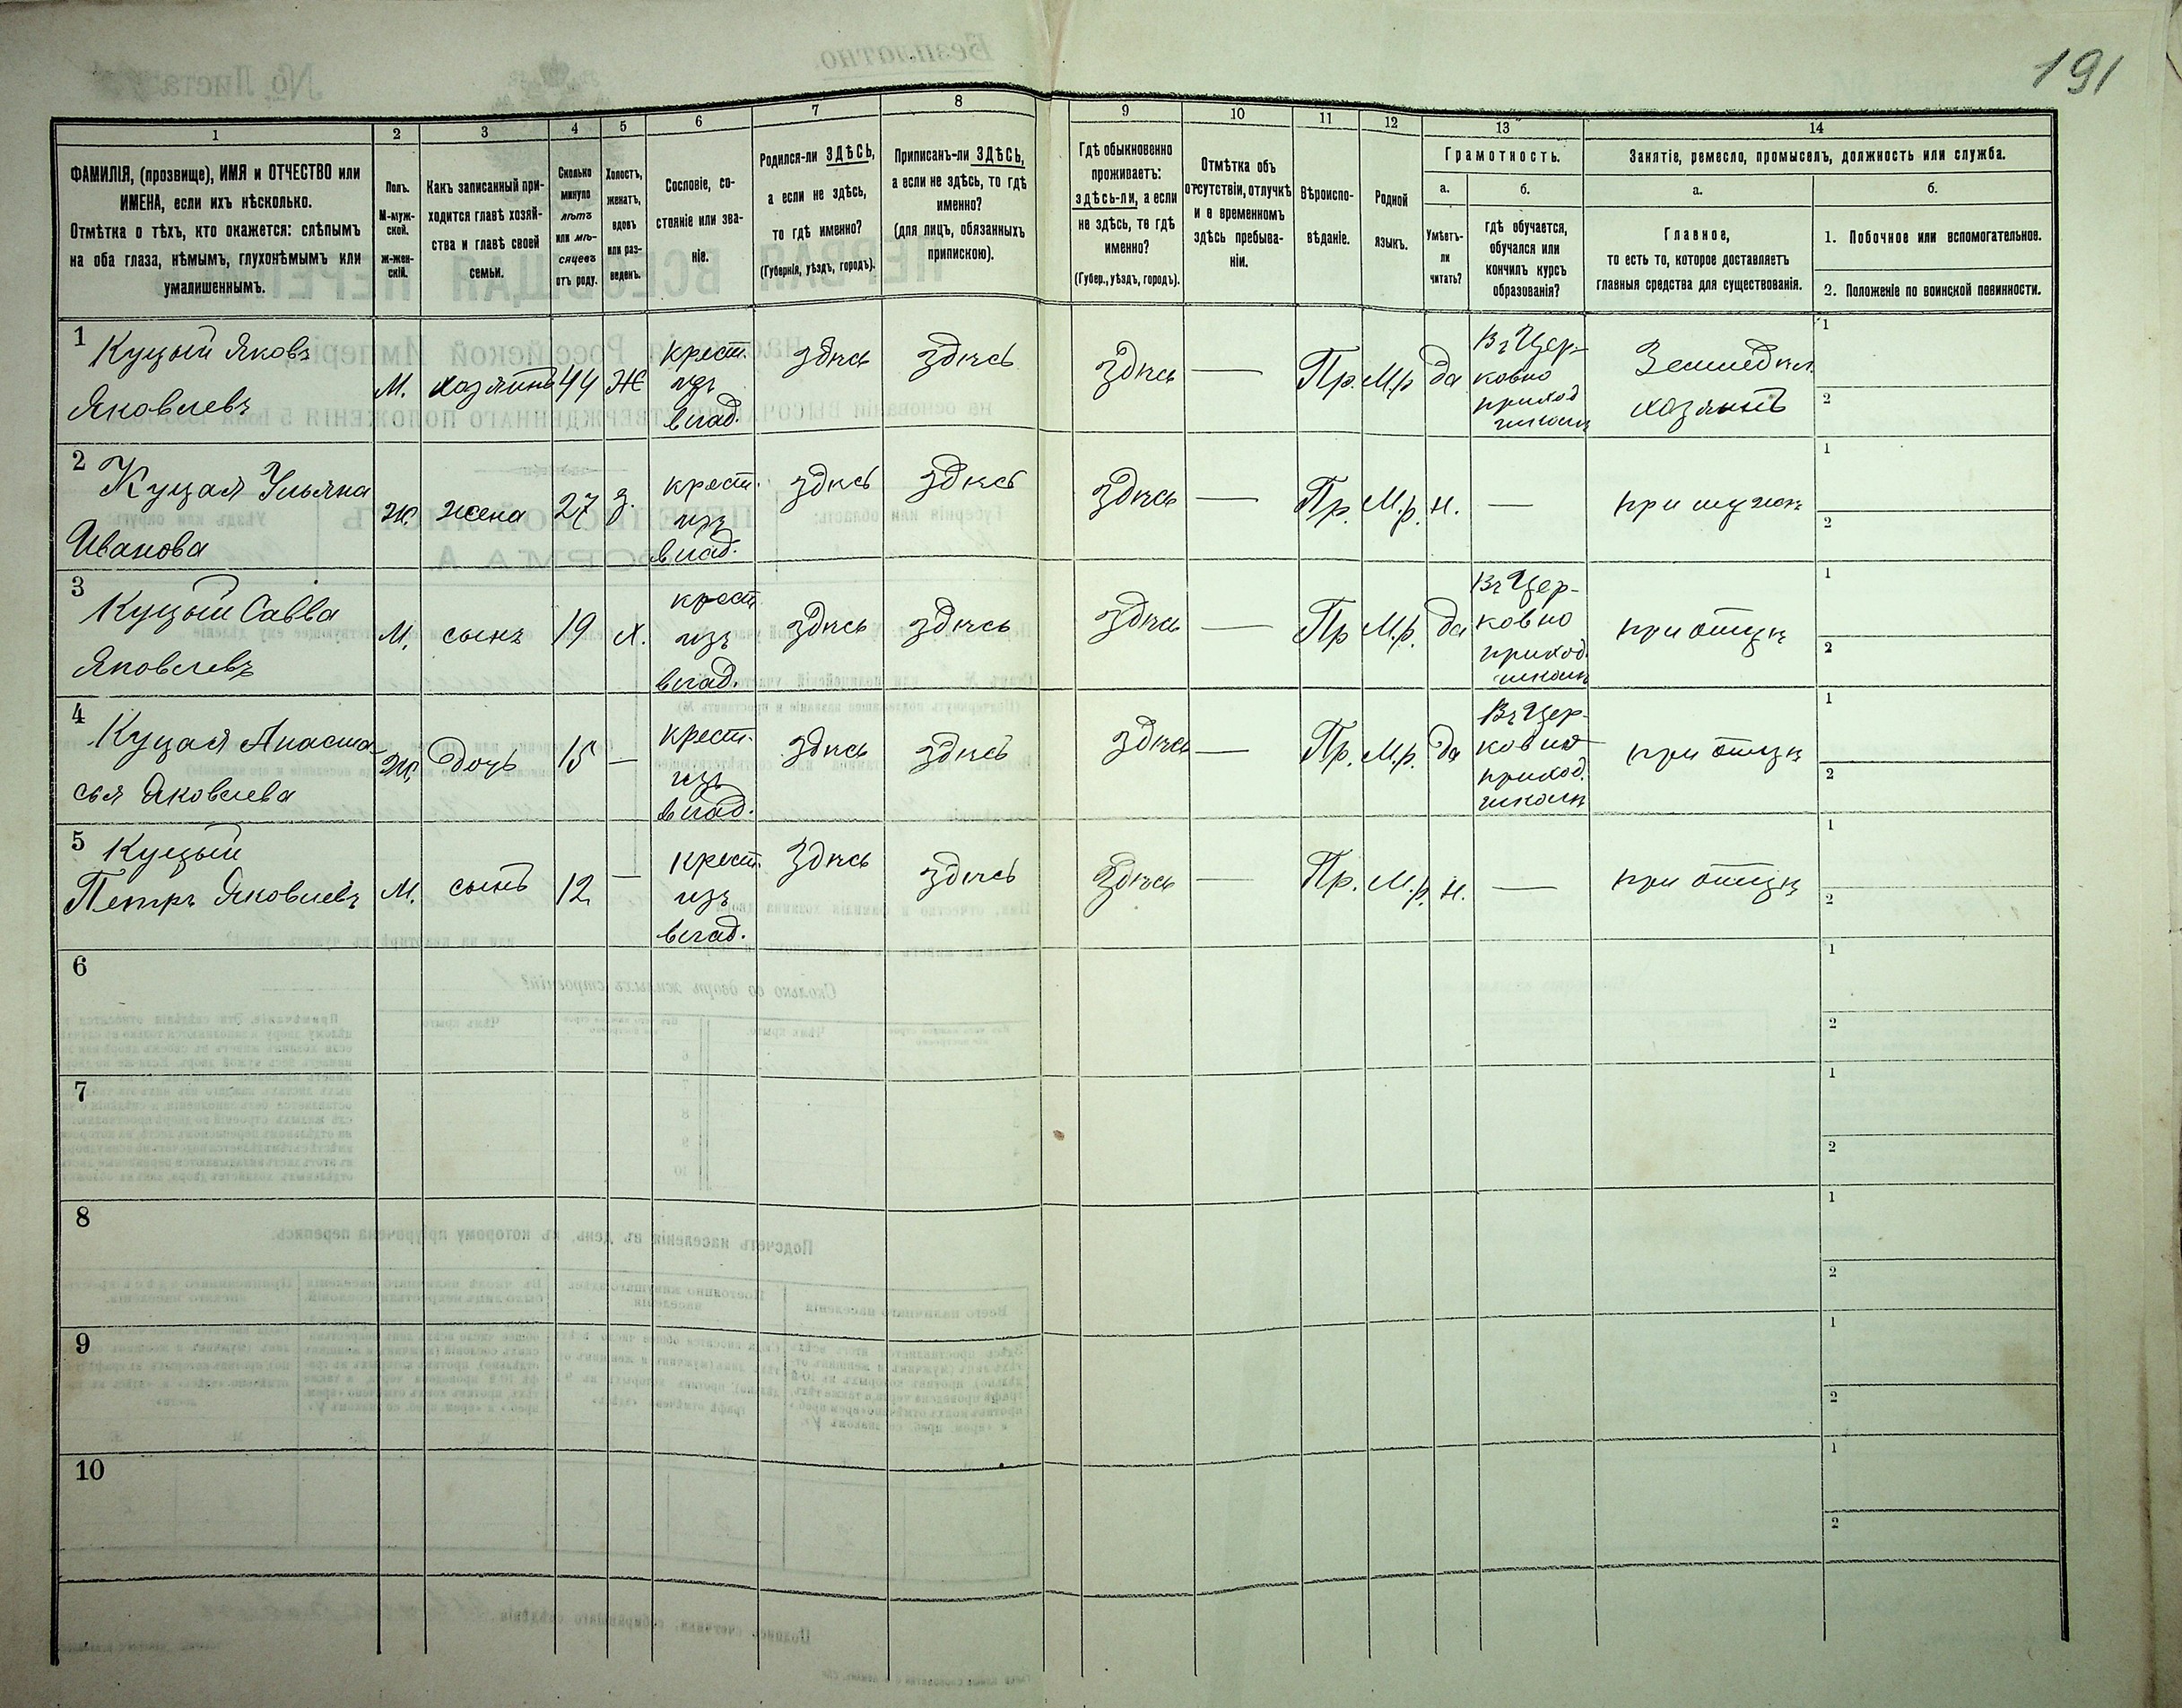 191
1
2
3
4
5
6
7
8
9
10
11
12
13
14
ФАМИЛІЯ, (прозвище), ИМЯ и ОТЧЕСТВО или
ИМЕНА, если ихъ нѣсколько.
Отмѣтка о тѣхъ, кто окажется: слѣпымъ
на оба глаза, нѣмымъ, глухонѣмымъ или
умалишеннымъ.
Полъ.
М-муж-
ской.
Ж-жен-
скій.
Какъ записанный при-
ходится главѣ хозяй-
ства и главѣ своей
семьи.
Сколько
минуло
лѣтъ
или мѣ-
сяцевъ
отъ роду.
Холостъ,
женатъ,
вдовъ
или раз-
веденъ.
Сословіе, со-
стояніе или зва-
ніе.
Родился-ли ЗДѢСЬ,
а если не здѣсь,
то гдѣ именно?
(Губернія, уѣздъ, городъ).
Приписанъ-ли ЗДѢСЬ,
а если не здѣсь, то гдѣ
именно?
(для лицъ, обязанныхъ
припискою).
Гдѣ обыкновенно
проживаетъ:
здѣсь-ли, а если
не здѣсь, то гдѣ
именно?
(Губер., уѣздъ, городъ).
Отмѣтка объ
отсутствіи, отлучкѣ
и о временномъ
здѣсь пребыва-
ніи.
Вѣроиспо-
вѣданіе.
Родной
языкъ.
Грамотность.
а.
Умѣетъ-
ли
читать?
б.
Гдѣ обучается,
обучался или
кончилъ курсъ
образованія?
Занятіе, ремесло, промыселъ, должность или служба.
а.
Главное,
то есть то, которое доставляетъ
главныя средства для существованія.
б.
1. Побочное или вспомогательное.
2. Положеніе по воинской повинности.
1
Куцый Яковъ
Яковлевъ
М.
хозяинъ
44
Ж
крест.
изъ
влад.
здѣсь
здѣсь
здѣсь
—
Пр.
М.р
да
Въ Цер-
ковно
приход
школѣ
Земледѣл.
хозяинъ
1
2
2
Куцая Ульяна
Иванова
Ж.
жена
27
З.
крест.
изъ
влад.
здѣсь
здѣсь
здѣсь
—
Пр.
М.р.
н.
—
при мужѣ
1
2
3
Куцый Савва
Яковлевъ
М.
сынъ
19
Х.
крест
изъ
влад.
здѣсь
здѣсь
здѣсь
—
Пр
М.р.
да
Въ Цер-
ковно
приход.
школѣ
при отцѣ
1
2
4
Куцая Анаста-
сья Яковлева
Ж.
дочь
15
—
крест.
изъ
влад.
здѣсь
здѣсь
здѣсь
—
Пр.
М.р.
да
Въ Цер-
ковно
приход.
школѣ
при отцѣ
1
2
5
Куцый
Петръ Яковлевъ
М.
сынъ
12
—
крест.
изъ
влад.
здѣсь
здѣсь
здѣсь
—
Пр.
М.р.
н.
—
при отцѣ
1
2
6
1
2
7
1
2
8
1
2
9
1
2
10
1
2